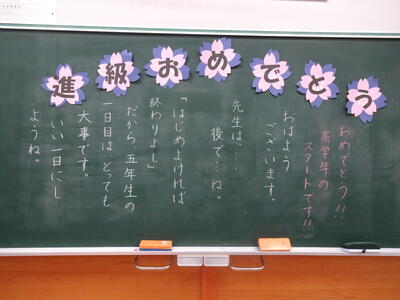 進級おめでとう
おめでとう!!
高学年の
スタートです!!
おはよう
ございます。
先生は、…
後で…ね。
「はじめよければ
終わりよし」
だから、五年生の
一日目は、とっても
大事です。
いい一日にし
ようね。